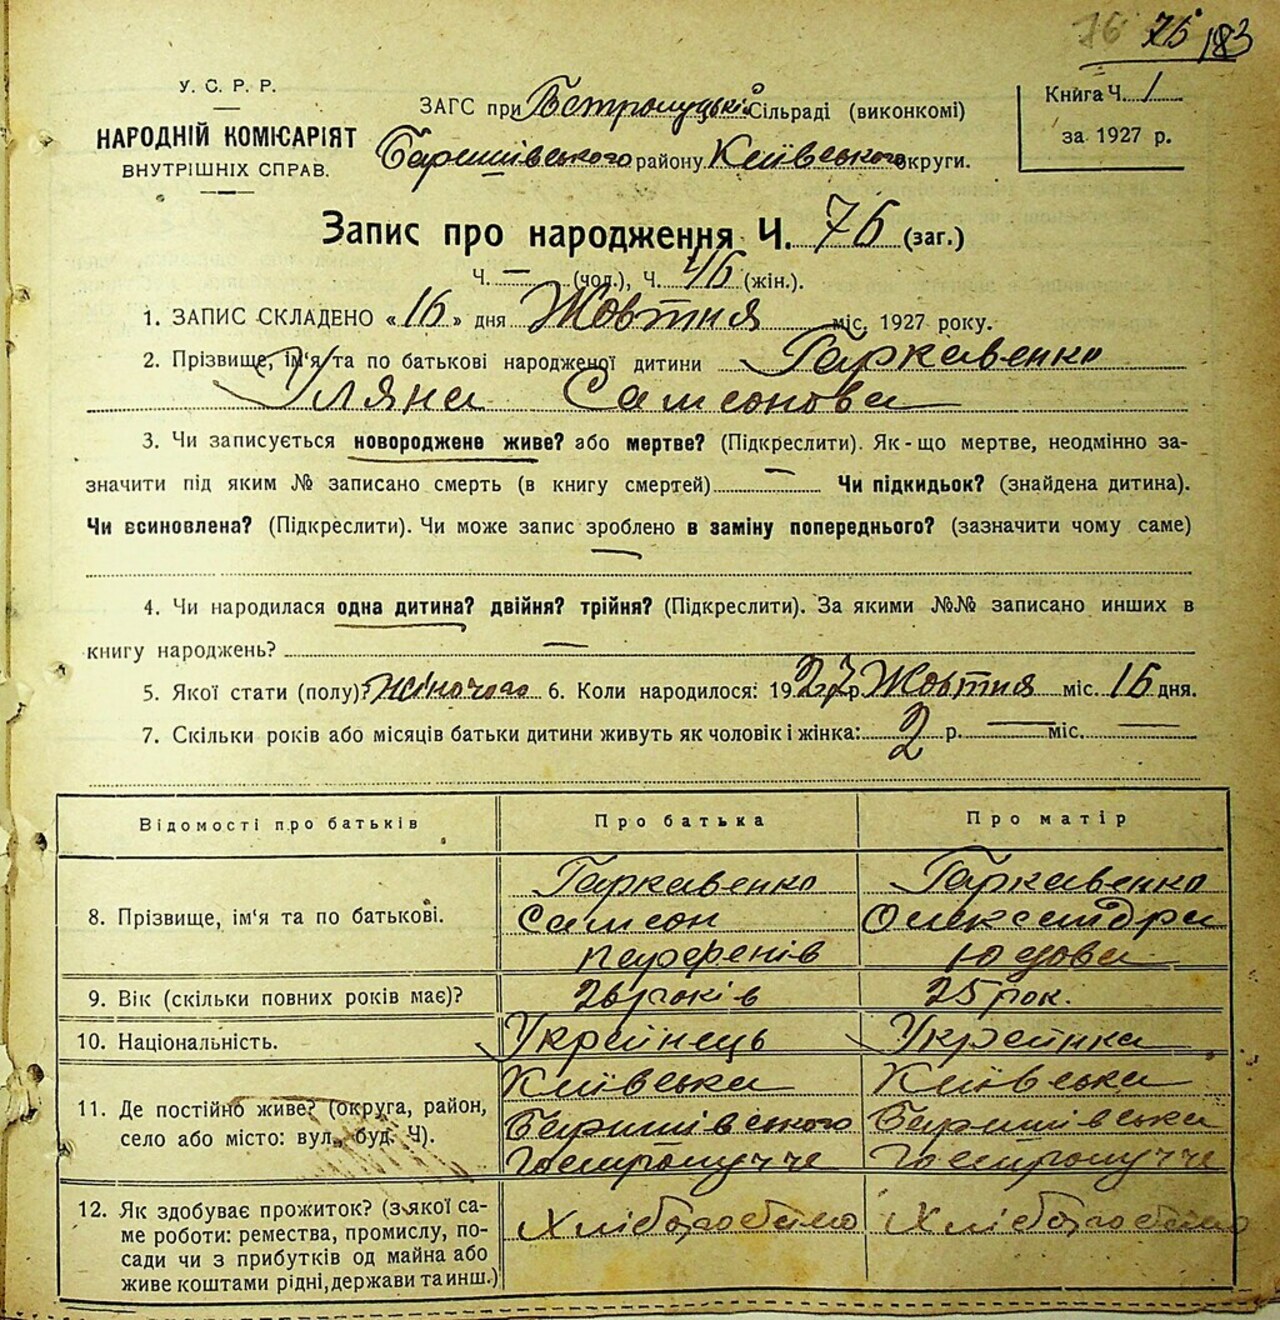 76 75 183
У. С. Р. Р.
НАРОДНІЙ КОМІСАРІЯТ
ВНУТРІШНІХ СПРАВ.
ЗАГС при Гостролуцькій Сільраді (виконкомі)
Баришівського району Київського округи.
Книга Ч. 1
за 1927 р.
Запис про народження Ч. 76 (заг.)
Ч. — (чол.), Ч. 46 (жін.).
1. ЗАПИС СКЛАДЕНО «16» дня Жовтня міс. 1927 року.
2. Прізвище, ім'я та по батькові народженої дитини Гаркавенко
Уляна Самсонова
3. Чи записується новороджене живе? або мертве? (Підкреслити). Як-що мертве, неодмінно за-
значити під яким № записано смерть (в книгу смертей) — Чи підкидьок? (знайдена дитина).
Чи всиновлена? (Підкреслити). Чи може запис зроблено в заміну попереднього? (зазначити чому саме)
—
4. Чи народилася одна дитина? двійня? трійня? (Підкреслити). За якими №№ записано инших в
книгу народжень? —
5. Якої стати (полу)? жіночого 6. Коли народилося: 1927 р. Жовтня міс. 16 дня.
7. Скільки років або місяців батьки дитини живуть як чоловік і жінка: 2 р. — міс. —
Відомості про батьків Про батька Про матір
8. Прізвище, ім'я та по батькові.
Гаркавенко
Самсон
Парфенів
Гаркавенко
Олександра
Юдова
9. Вік (скільки повних років має)? 26 років 25 рок.
10. Національність. Українець Українка
11. Де постійно живе? (округа, район,
село або місто: вул., буд. Ч).
Київська
Баришівського
Гостролуччє
Київська
Баришівська
Гостролуччє
12. Як здобуває прожиток? (з якої са-
ме роботи: ремества, промислу, по-
сади чи з прибутків од майна або
живе коштами рідні, держави та инш.)
Хліборобство
Хліборобство